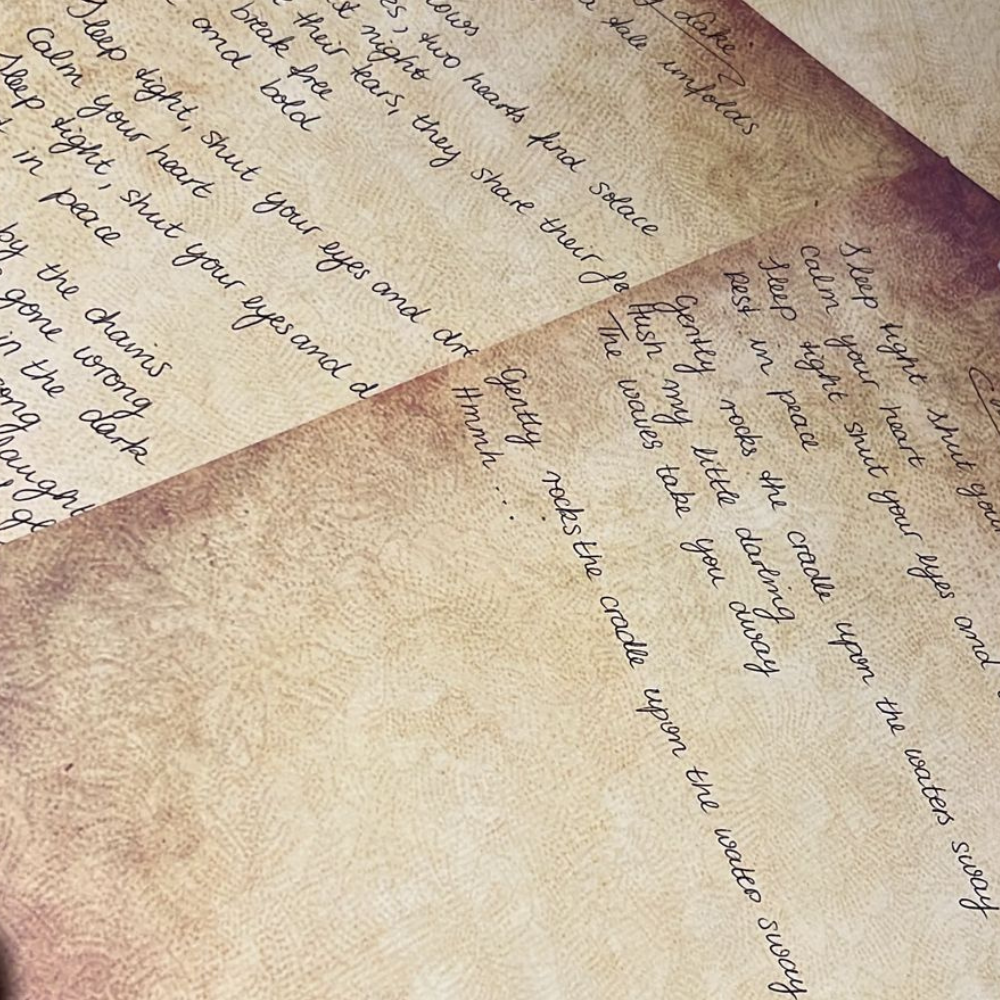 Lake
a tale unfolds
lows
es, two hearts find solace
night
their tears, they share their fe
break free
and bold
Sleep tight, shut your eyes and dre
Calm your heart
Sleep tight, shut your eyes and d
in peace
by the chains
gone wrong
in the dark
ong
laught
gl
Sleep tight shut you
calm your heart
Sleep tight shut your eyes and
Rest in peace
Gently rocks the cradle upon the waters sway
Hush my little darling
The waves take you away
Gently rocks the cradle upon the waters sway
Hmmh...